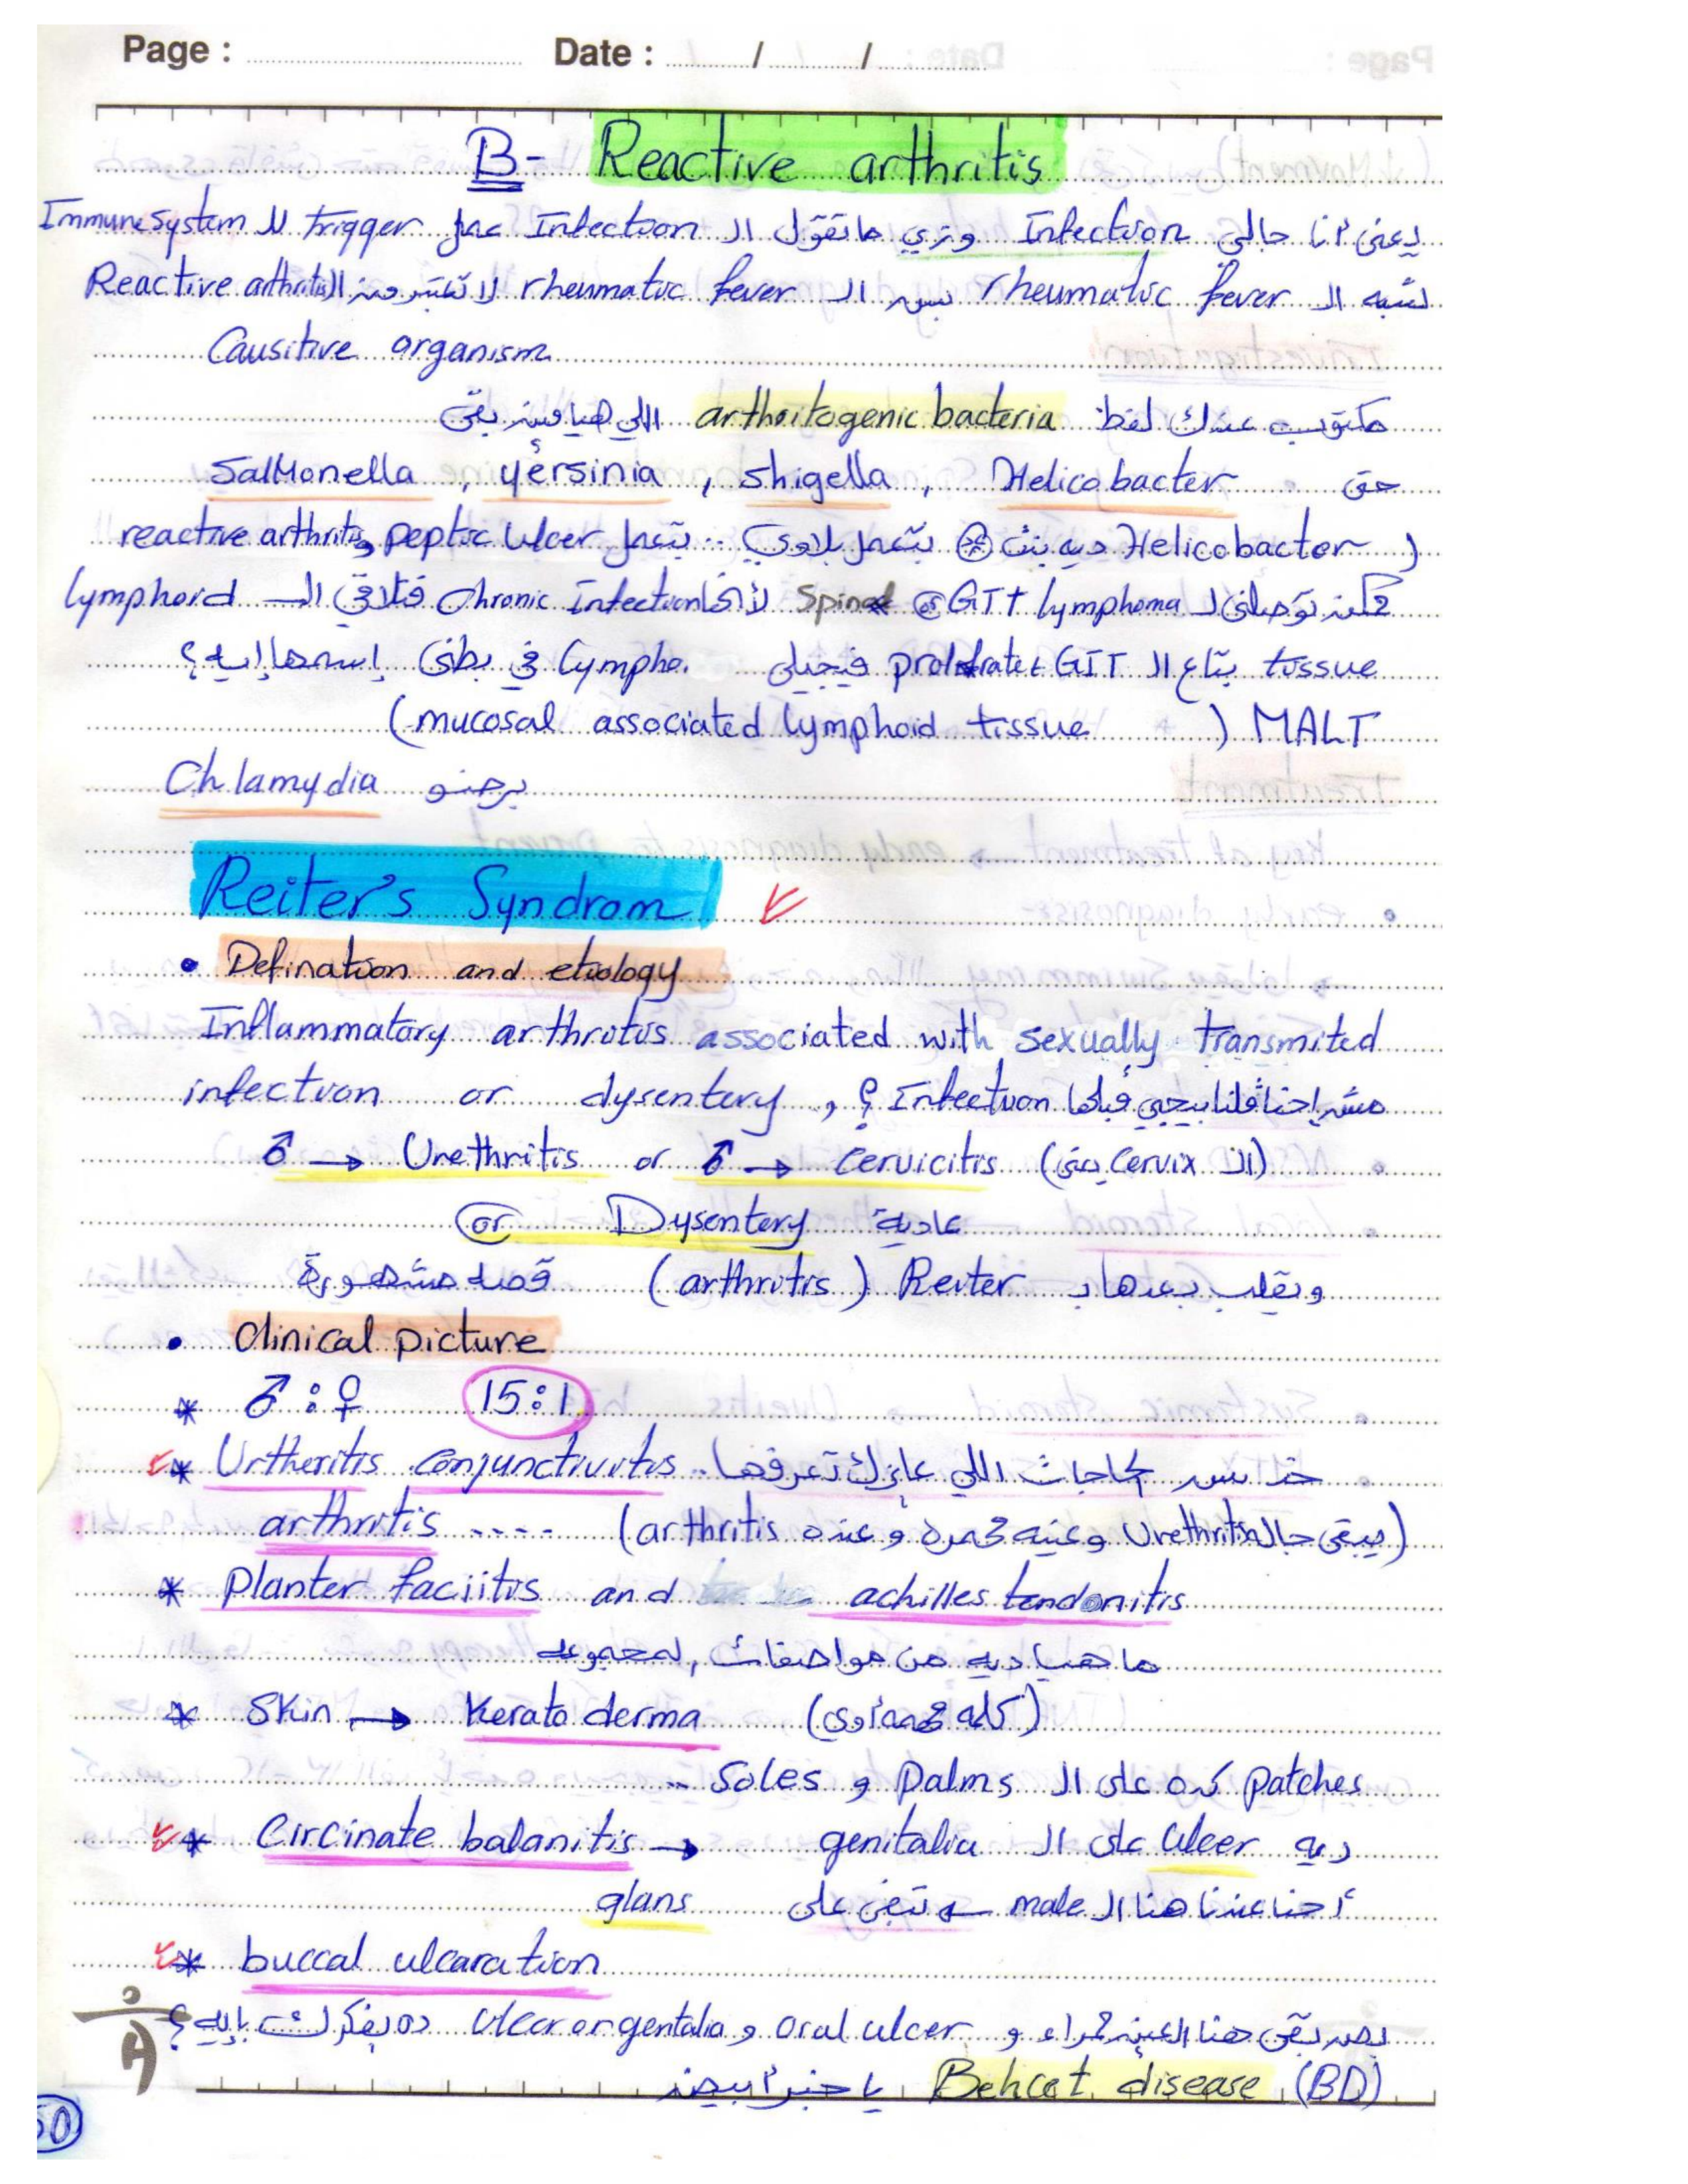 Page : Date : / /
B- Reactive arthritis
يعني أنا جالي Infection وزي ماتقول ال Infection عمل trigger لل Immune system
تشبه ال rheumatic fever بس ال rheumatic fever لا تعتبر من ال Reactive arthritis
Causitive organism
مكتوب عندك لفظ arthritogenic bacteria اللي هيا مين بقى
حق Salmonella , yersinia , shigella , Helicobacter
( Helicobacter ديه بنت * بتعمل بلاوي .. بتعمل peptic ulcer و reactive arthritis
ممكن توصلني ل GIT lymphoma لأنها Chronic Infection فتلاقي ال lymphoid
tissue بتاع ال GIT proliferate فيجيلي lympho. في بطني إسمها إيه ؟
MALT ( mucosal associated lymphoid tissue )
برضو Chlamydia
Reiter's Syndrom
• Defination and etiology
Inflammatory arthritis associated with sexually transmited
infection or dysentery , مش احنا قلنا بيجي قبلها Infection ؟
♂ → Urethritis or ♂ → Cervicitis (ال Cervix يعني)
or Dysentery عادية
وتقلب بعدها ب Reiter ( arthritis ) قصة مشهورة
• Clinical picture
* ♂ : ♀ 15:1
* Urtheritis conjunctivitis .. خد بس الحاجات اللي عايزك تعرفها
arthritis .... (يبقى جاله Urethritis وعينه حمرة وعنده arthritis)
* Planter faciitis and achilles tendonitis
ما هيا ديه من مواصفات المجموعة
* Skin → Kerato derma (كله حمراوي)
patches كده على ال Palms و Soles ..
* Circinate balanitis → ديه ulcer على ال genitalia
أحنا عندنا هنا ال male تبقى على glans
* buccal ulcaration
بصد بقى هنا العين حمراء و oral ulcer و ulcer on gentalia ده يفكرك بإيه ؟
(BD) Behcet disease يا حبر أبيض
50